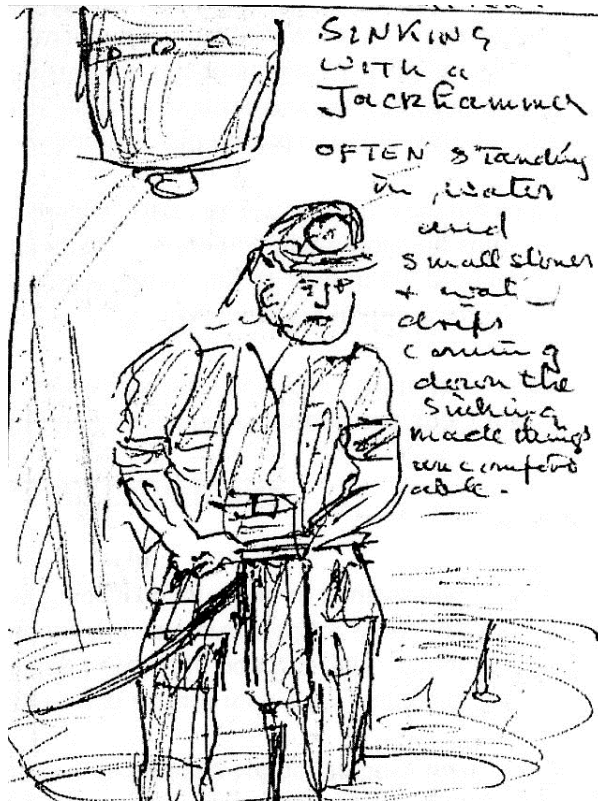 SINKING
WITH a
Jackhammer
OFTEN standing
in water
and
small stones
+
drips
coming
down the
sinking
made things
uncomfort
able.